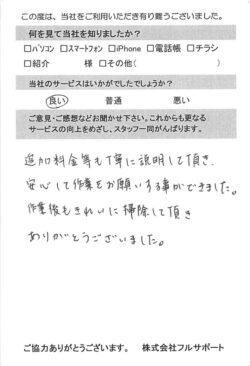 この度は、当社をご利用いただき有り難うございました。
何を見て当社を知りましたか?
□パソコン □スマートフォン □iPhone □電話帳 □チラシ
□紹介 様 □その他( )
当社のサービスはいかがでしたでしょうか?
良い 普通 悪い
ご意見・ご感想などお聞かせ下さい。これからも更なる
サービスの向上をめざし、スタッフ一同がんばります。
追加料金等も丁寧に説明して頂き、
安心して作業をお願いする事ができました。
作業後もきれいに掃除して頂き
ありがとうございました。
ご協力ありがとうございます。 株式会社フルサポート